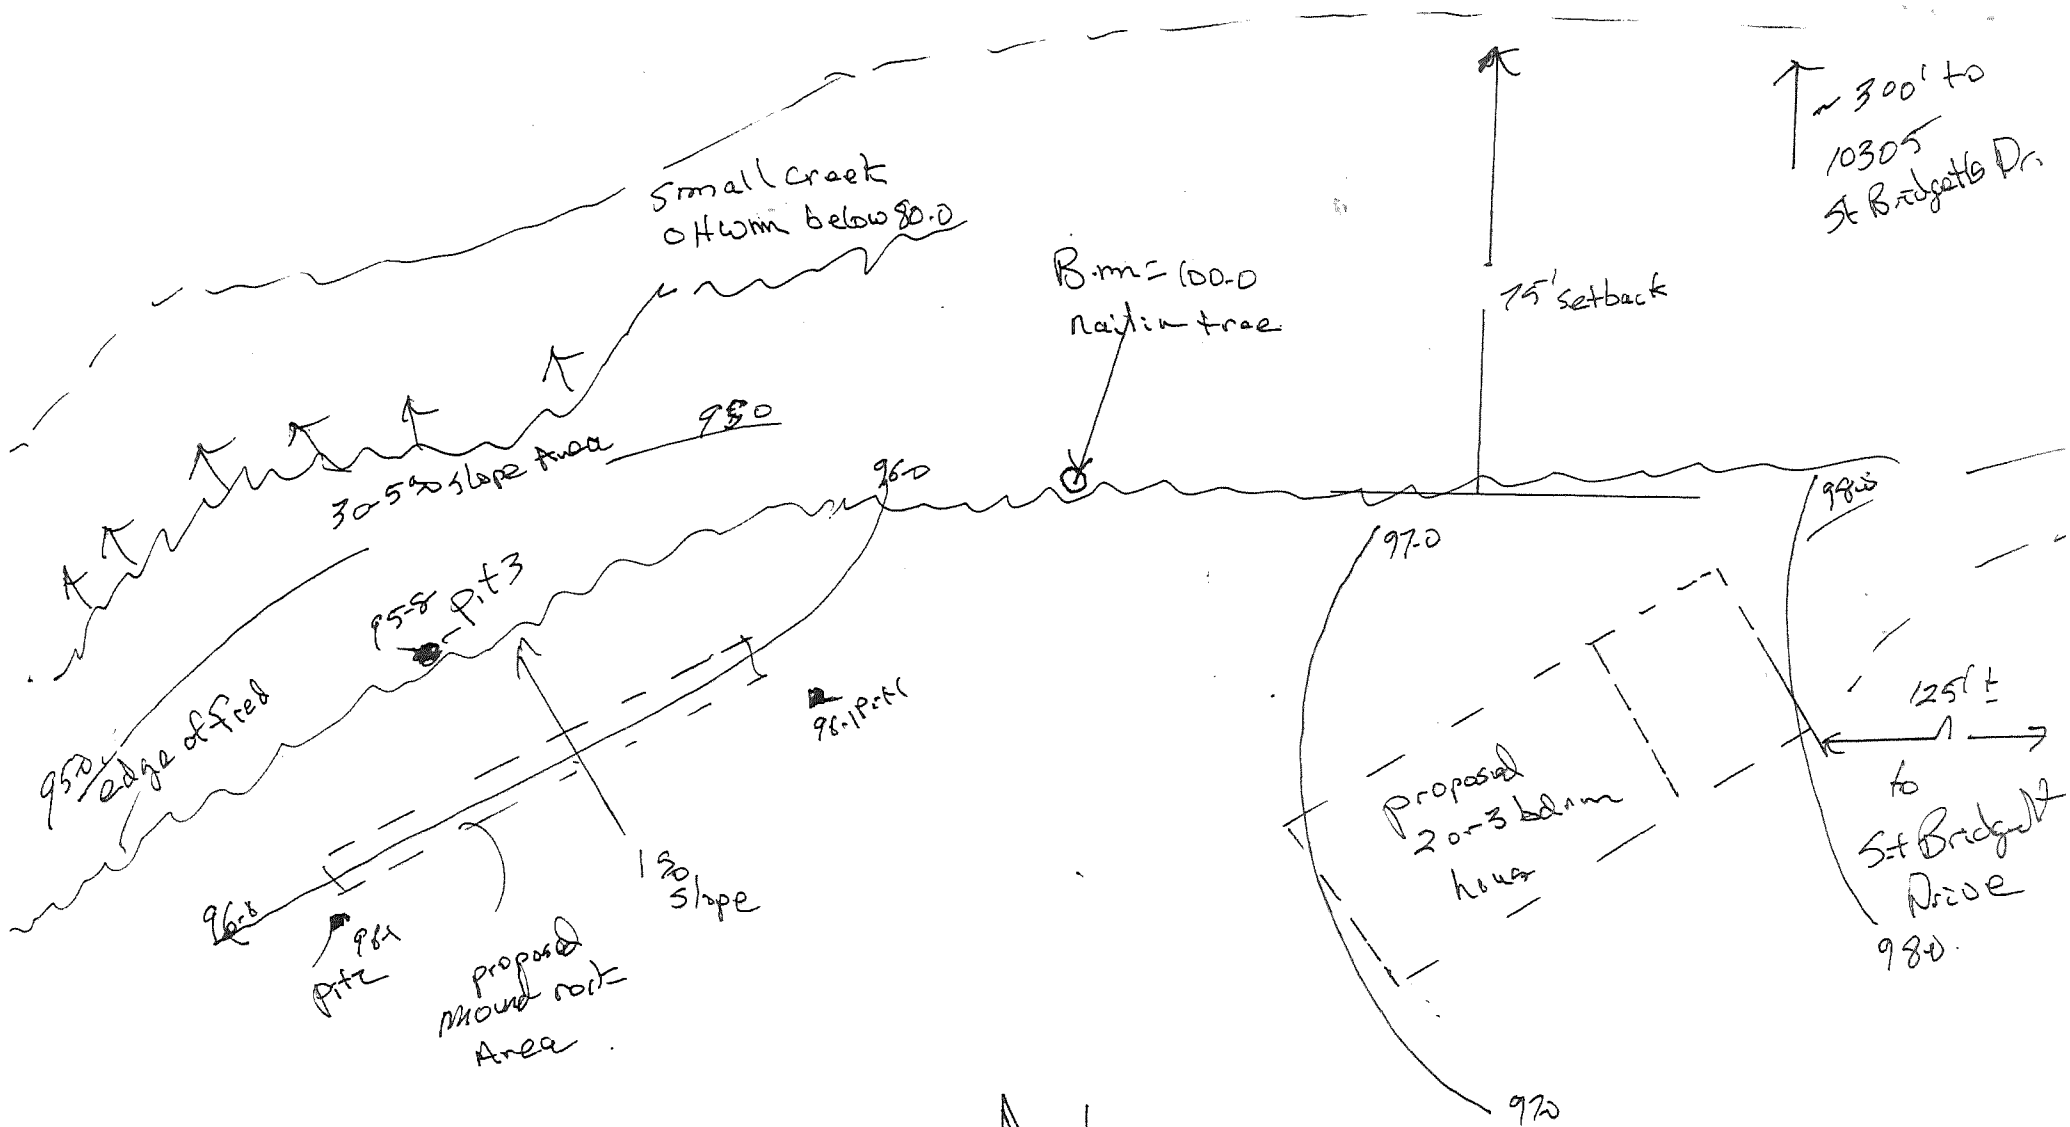 ~ 300' to
10305
St Bridgets Dr.
Small creek
OHWM below 80.0
B.m = 100.0
nail in tree
75' setback
95.0
30-5% slope Area
96.0
98.0
97.0
95.8
pit 3
125' ±
to
St Bridget
Drive
96.1 pit 1
95.0
edge of field
proposed
2 or 3 bdrm
house
1%
Slope
96.0
pit 2
proposed
mound rock
Area
98.0
97.0